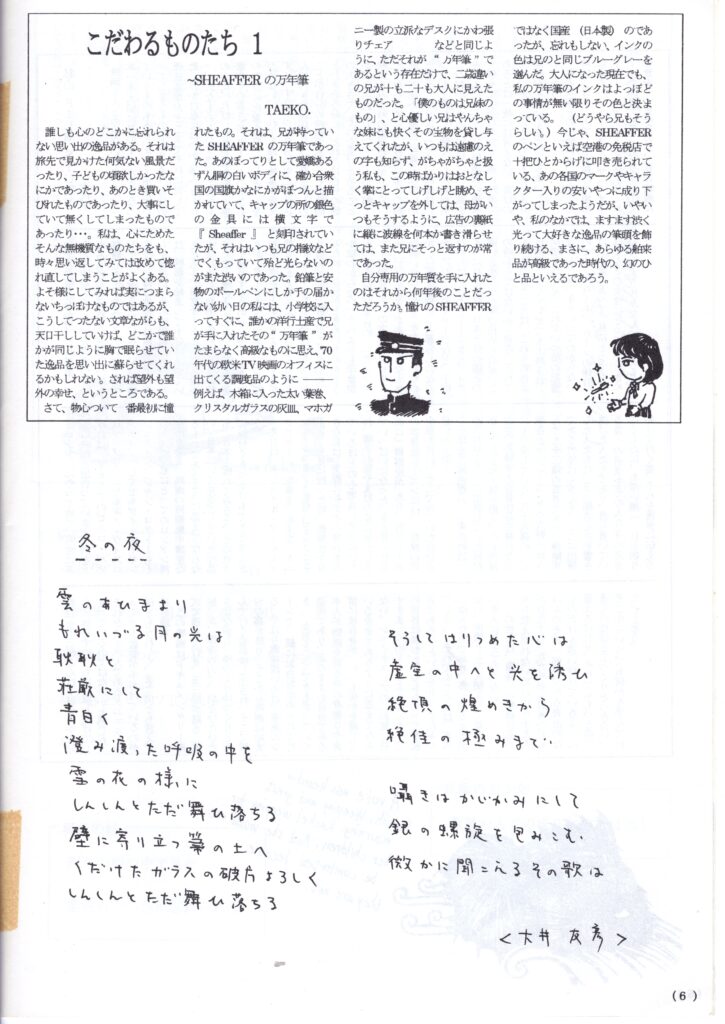 こだわるものたち 1
~SHEAFFERの万年筆
TAEKO.
誰しも心のどこかに忘れられ
ない思い出の逸品がある。それは
旅先で見かけた何気ない風景だ
ったり、子どもの頃欲しかったな
にかであったり、あのとき買いそ
びれたものであったり、大事にし
ていて無くしてしまったものであ
ったり・・・。私は、心にためた
そんな無機質なものたちをも、
時々思い返してみては改めて惚
れ直してしまうことがよくある。
よそ様にしてみれば実につまら
ないちっぽけなものではあるが、
こうしてつたない文章ながらも、
天日干ししていけば、どこかで誰
かが同じように胸で眠らせてい
た逸品を思い出に蘇らせてくれ
るかもしれない。されば望外も望
外の幸せ、というところである。
さて、物心ついて一番最初に憧
れたもの。それは、兄が持ってい
たSHEAFFERの万年筆であっ
た。あのぽってりとして愛嬌ある
ずん胴の白いボディに、確か合衆
国の国旗かなにかがぽつんと描
かれていて、キャップの所の銀色
の金具には横文字で
『Sheaffer』と刻印されてい
たが、それはいつも兄の指紋など
でくもっていて殆ど光らないの
がまた渋いのであった。鉛筆と安
物のボールペンにしか手の届か
ない幼い日の私には、小学校に入
ってすぐに、誰かの洋行土産で兄
が手に入れたその“万年筆”が
たまらなく高級なものに思え、'70
年代の欧米TV映画のオフィスに
出てくる調度品のように ―――
例えば、木箱に入った太い葉巻、
クリスタルガラスの灰皿、マホガ
ニー製の立派なデスクにかわ張
りチェア などと同じよ
うに、ただそれが“万年筆”で
あるという存在だけで、二歳違い
の兄が十も二十も大人に見えた
ものだった。「僕のものは兄妹の
もの」、と心優しい兄はやんちゃ
な妹にも快くその宝物を貸し与
えてくれたが、いつもは遠慮のえ
の字も知らず、がちゃがちゃと扱
う私も、この時ばかりはおとなし
く掌にとってしげしげと眺め、そ
っとキャップを外しては、母がい
つもそうするように、広告の裏紙
に縦に波線を何本か書き滑らせ
ては、また兄にそっと返すのが常
であった。
自分専用の万年筆を手に入れた
のはそれから何年後のことだっ
ただろうか。憧れのSHEAFFER
ではなく国産（日本製）のであ
ったが、忘れもしない、インクの
色は兄のと同じブルーグレーを
選んだ。大人になった現在でも、
私の万年筆のインクはよっぽど
の事情が無い限りその色と決ま
っている。（どうやら兄もそう
らしい。）今じゃ、SHEAFFER
のペンといえば空港の免税店で
十把ひとからげに叩き売られて
いる、あの各国のマークやキャラ
クター入りの安いやつに成り下
がってしまったようだが、いやい
や、私のなかでは、ますます渋く
光って大好きな逸品の筆頭を飾
り続ける、まさに、あらゆる舶来
品が高級であった時代の、幻のひ
と品といえるであろう。
冬の夜
雲のあひまより
もれいづる月の光は
耿耿と
荘厳にして
青白く
澄み渡った呼吸の中を
雪の花の様に
しんしんとただ舞ひ落ちる
壁に寄り立つ箒の上へ
くだけたガラスの破片よろしく
しんしんとただ舞ひ落ちる
そうしてはりつめた心は
虚空の中へと光を誘ひ
絶頂の煌めきから
絶佳の極みまで
囁きはかじかみにして
銀の螺旋を包みこむ
微かに聞こえるその歌は
＜大井 友彦＞
(6)